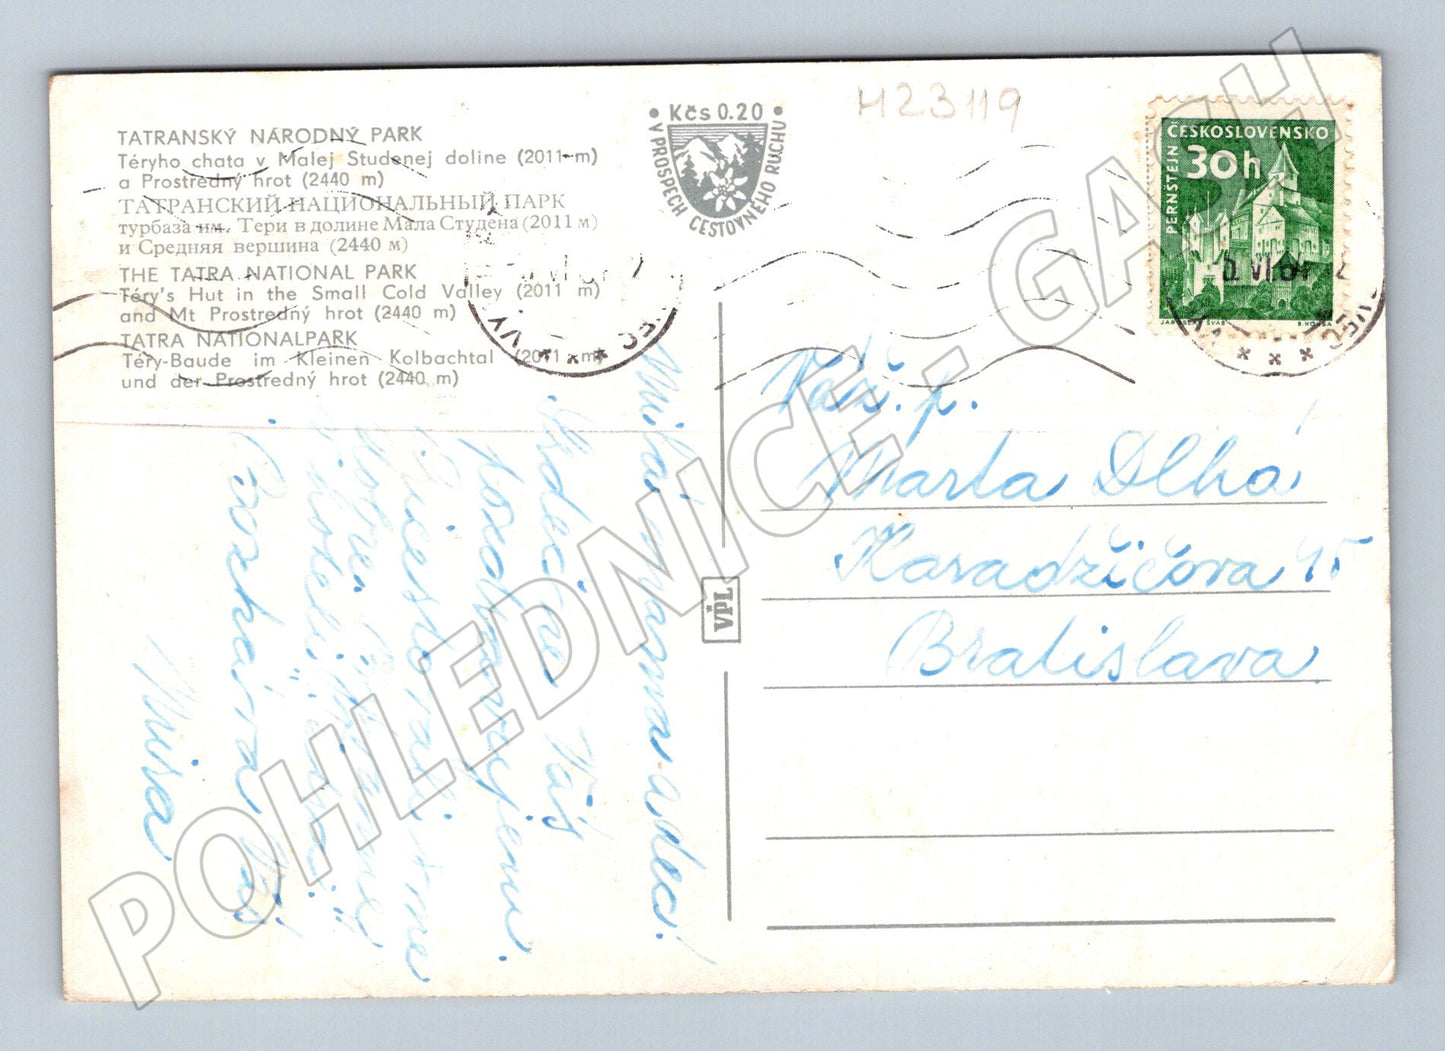 TATRANSKÝ NÁRODNÝ PARK
Téryho chata v Malej Studenej doline (2011 m)
a Prostredný hrot (2440 m)
ТАТРАНСКИЙ НАЦИОНАЛЬНЫЙ ПАРК
турбаза им. Тери в долине Мала Студена (2011 м)
и Средняя вершина (2440 м)
THE TATRA NATIONAL PARK
Téry's Hut in the Small Cold Valley (2011 m)
and Mt Prostredný hrot (2440 m)
TATRA NATIONALPARK
Téry-Baude im Kleinen Kolbachtal (2011 m)
und der Prostredný hrot (2440 m)
Kčs 0.20
V PROSPECH CESTOVNÉHO RUCHU
H23119
ČESKOSLOVENSKO
30h
PERNŠTEJN
JAROSLAV ŠVÁB
VPL
Milá
Srdečne Vás
pozdravujem
Pricestovali sme
dobre.
Pozhárva Vás
Mira
Váž. p.
Marta Dlhá
Karadžičova 45
Bratislava
POHLEDNICE - GACH